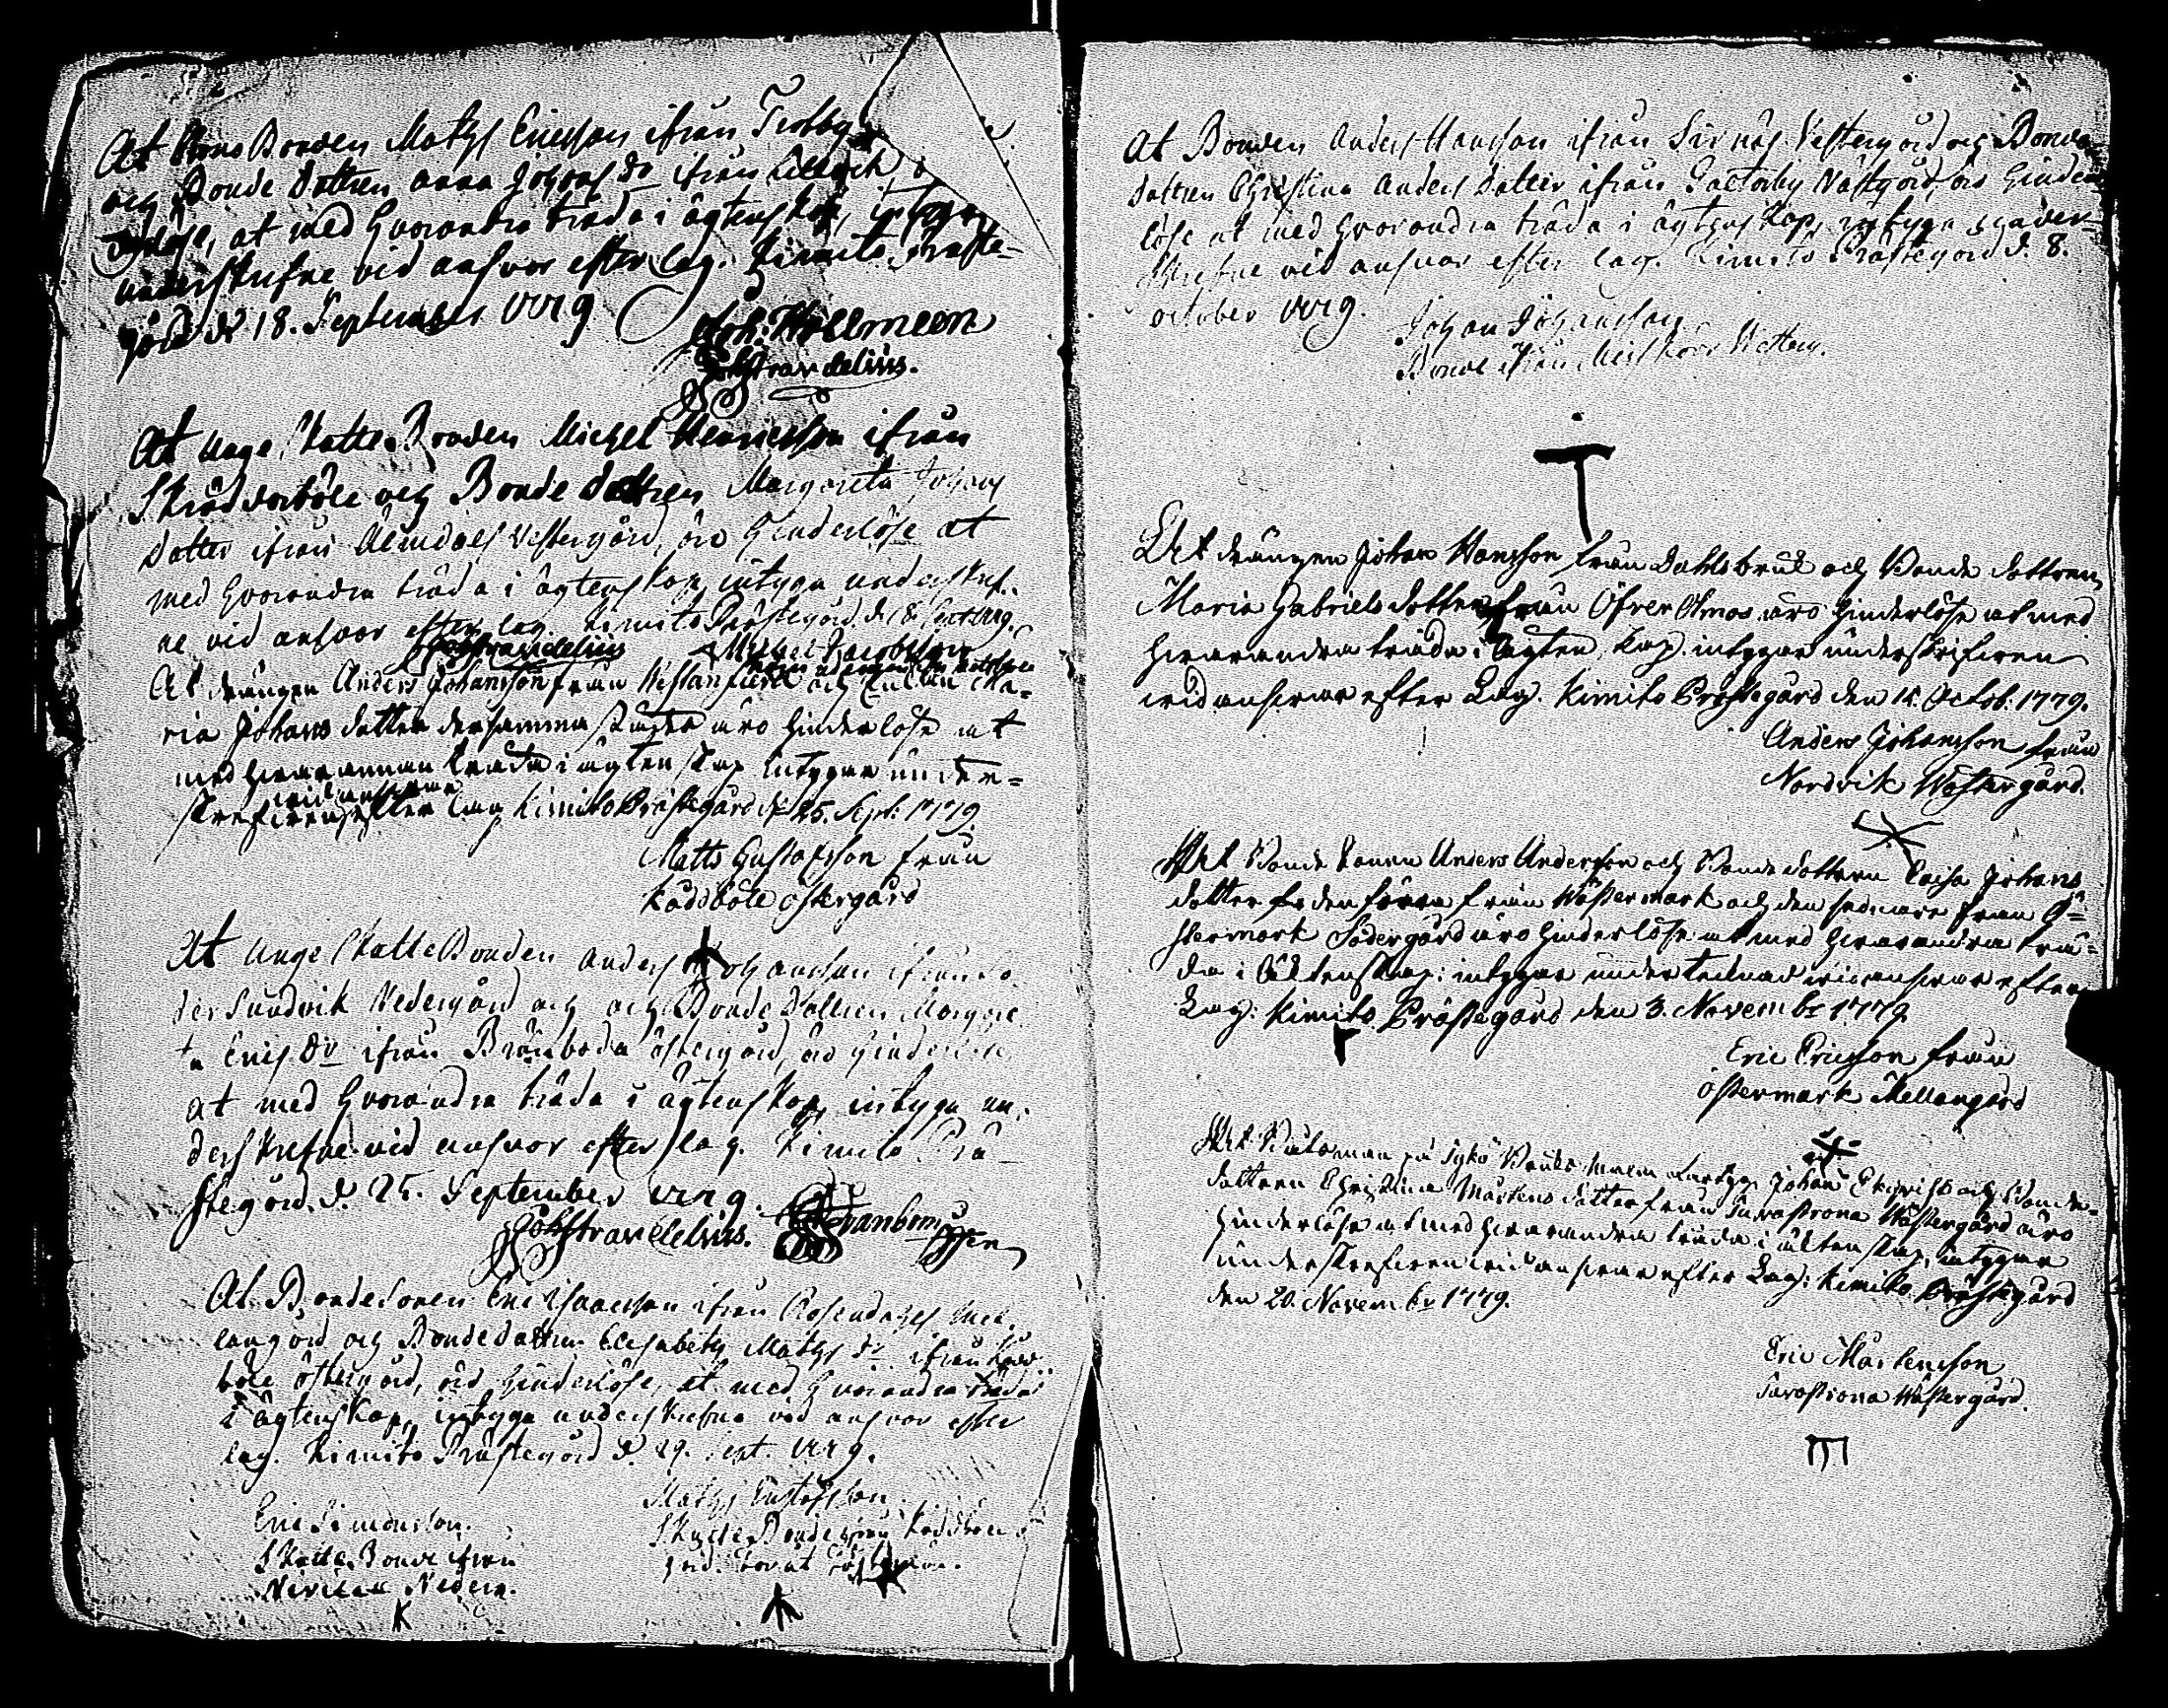 At Crono Bonden Matzs Ericsson ifrån Trotby
och Bonde dottren Anna Johans dr ifrån
löse, at med hvarandra träda i ägtenskap, intyga
underskrifne vid answar efter lag. Kimito Präste-
gård d. 18. September 1779
Joh: Hollmeen
Joh Strandelius.
At unge Skatte Bonden Michel Henricsson ifrån
Skräddarböle och Bonde dottren Margareta Johans
dotter ifrån Älmdals Västergård, äro hinderlöse at
med hvarandra träda i ägtenskap intyga underskref-
ne vid answar efter lag. Kimito Prästegård d. 18 Sept 1779.
Joh Strandelius Michel Jacobsson
At drängen Anders Johansson från Westanfierd och Enkan Ma-
ria Johans dotter dersamma städes äro hinderlöse at
med hwarannan träda i ägtenskap intygar under-
skrefwen
wid answar
efter lag Kimito Prästegård d. 25. Sept: 1779.
Matts Gustafsson från
Kåddböle Östergård
At unge Skatte Bonden Anders Johansson ifrån
der Sundvik Nedergård och och Bonde dottren Margare
ta Erics dr ifrån Brånboda östergård, äro hinderlöse
at med hvarandra träda i ägtenskap, intyga un-
derskrefne vid answar efter lag. Kimito Prä
stegård. d. 25. September 1779.
Joh Strandelius.
At Bondesonen Eric Isaacsson ifrån Rosendahls Mel-
langård och Bondedottren Elisabeth Matzs dr ifrån Kådd-
böle östergård, äro hinderlöse, at med hvarandra träda
i ägtenskap, intyga underskrefne vid answar efter
lag. Kimito Prästegård d. 29. Sept. 1779.
Eric Simonsson.
Skatte Bonde ifrån
Nederg.
Matzs Gustafsson
Skatte Bonde ifrån Kåddböle
At Bonden Anders Hansson ifrån Sirnäs Västergård och Bonde
dottren Christina Anders dotter ifrån Galtarby Nästgård, äro hinder
löse at med hvarandra träda i ägtenskap, intyga under-
skrefne vid answar efter lag. Kimito Prästegård d. 8.
october 1779.
Johan Johansson
Bonde ifrån Mishkärr Westerg.
At drängen Johan Hansson från Dahlsbruk och Bonde dottren
Maria Gabriels dotter från Öfver Olmos äro hinderlöse at med
hwarandra träda i ägtenskap. intygar underskrifwen
wid answar efter Lag. Kimito Prästegård den 15. Octob: 1779.
Anders Johansson från
Nordvik Wästergård.
At Bonde sonen Anders Andersson och Bonde dottren Caisa Johans
dotter den förra från Wästermark och den sednare från Ö-
stermark Södergård äro hinderlöse at med hwarandra trä-
da i Äcktenskap: intygar undertecknad wid answar efter
Lag: Kimito Prästegård den 3. Novembr 1779.
Eric Ericsson från
Östermark Mellangård
At Båtsman Johan Ekqvist och Bonde-
dottren Christina Mårtens dotter från Tarastrona Wästergård äro
hinderlöse at med hwarandra träda i äktenskap, intygar
underskrefwen wid answar efter Lag: Kimito Prästegård
den 20. Novembr 1779.
Eric Mårtensson
Tarastrona Wästergård.